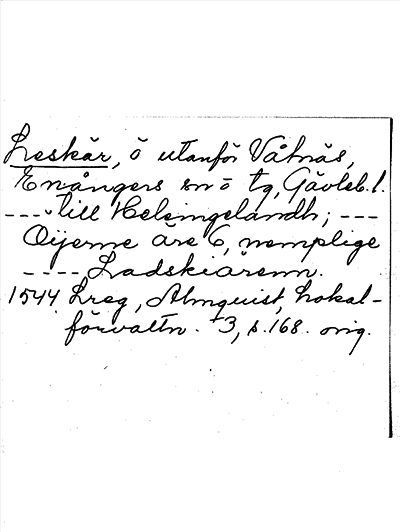 Leskär, ö utanför Våtnäs,
Enångers sn o tg, Gävleb. l.
---- till Helsingelandh; ---
Öijerne äre 6, nemplige
---- Ladskiärenn.
1544 Lreg, Almquist, Lokal-
förvaltn. 3, s. 168. orig.